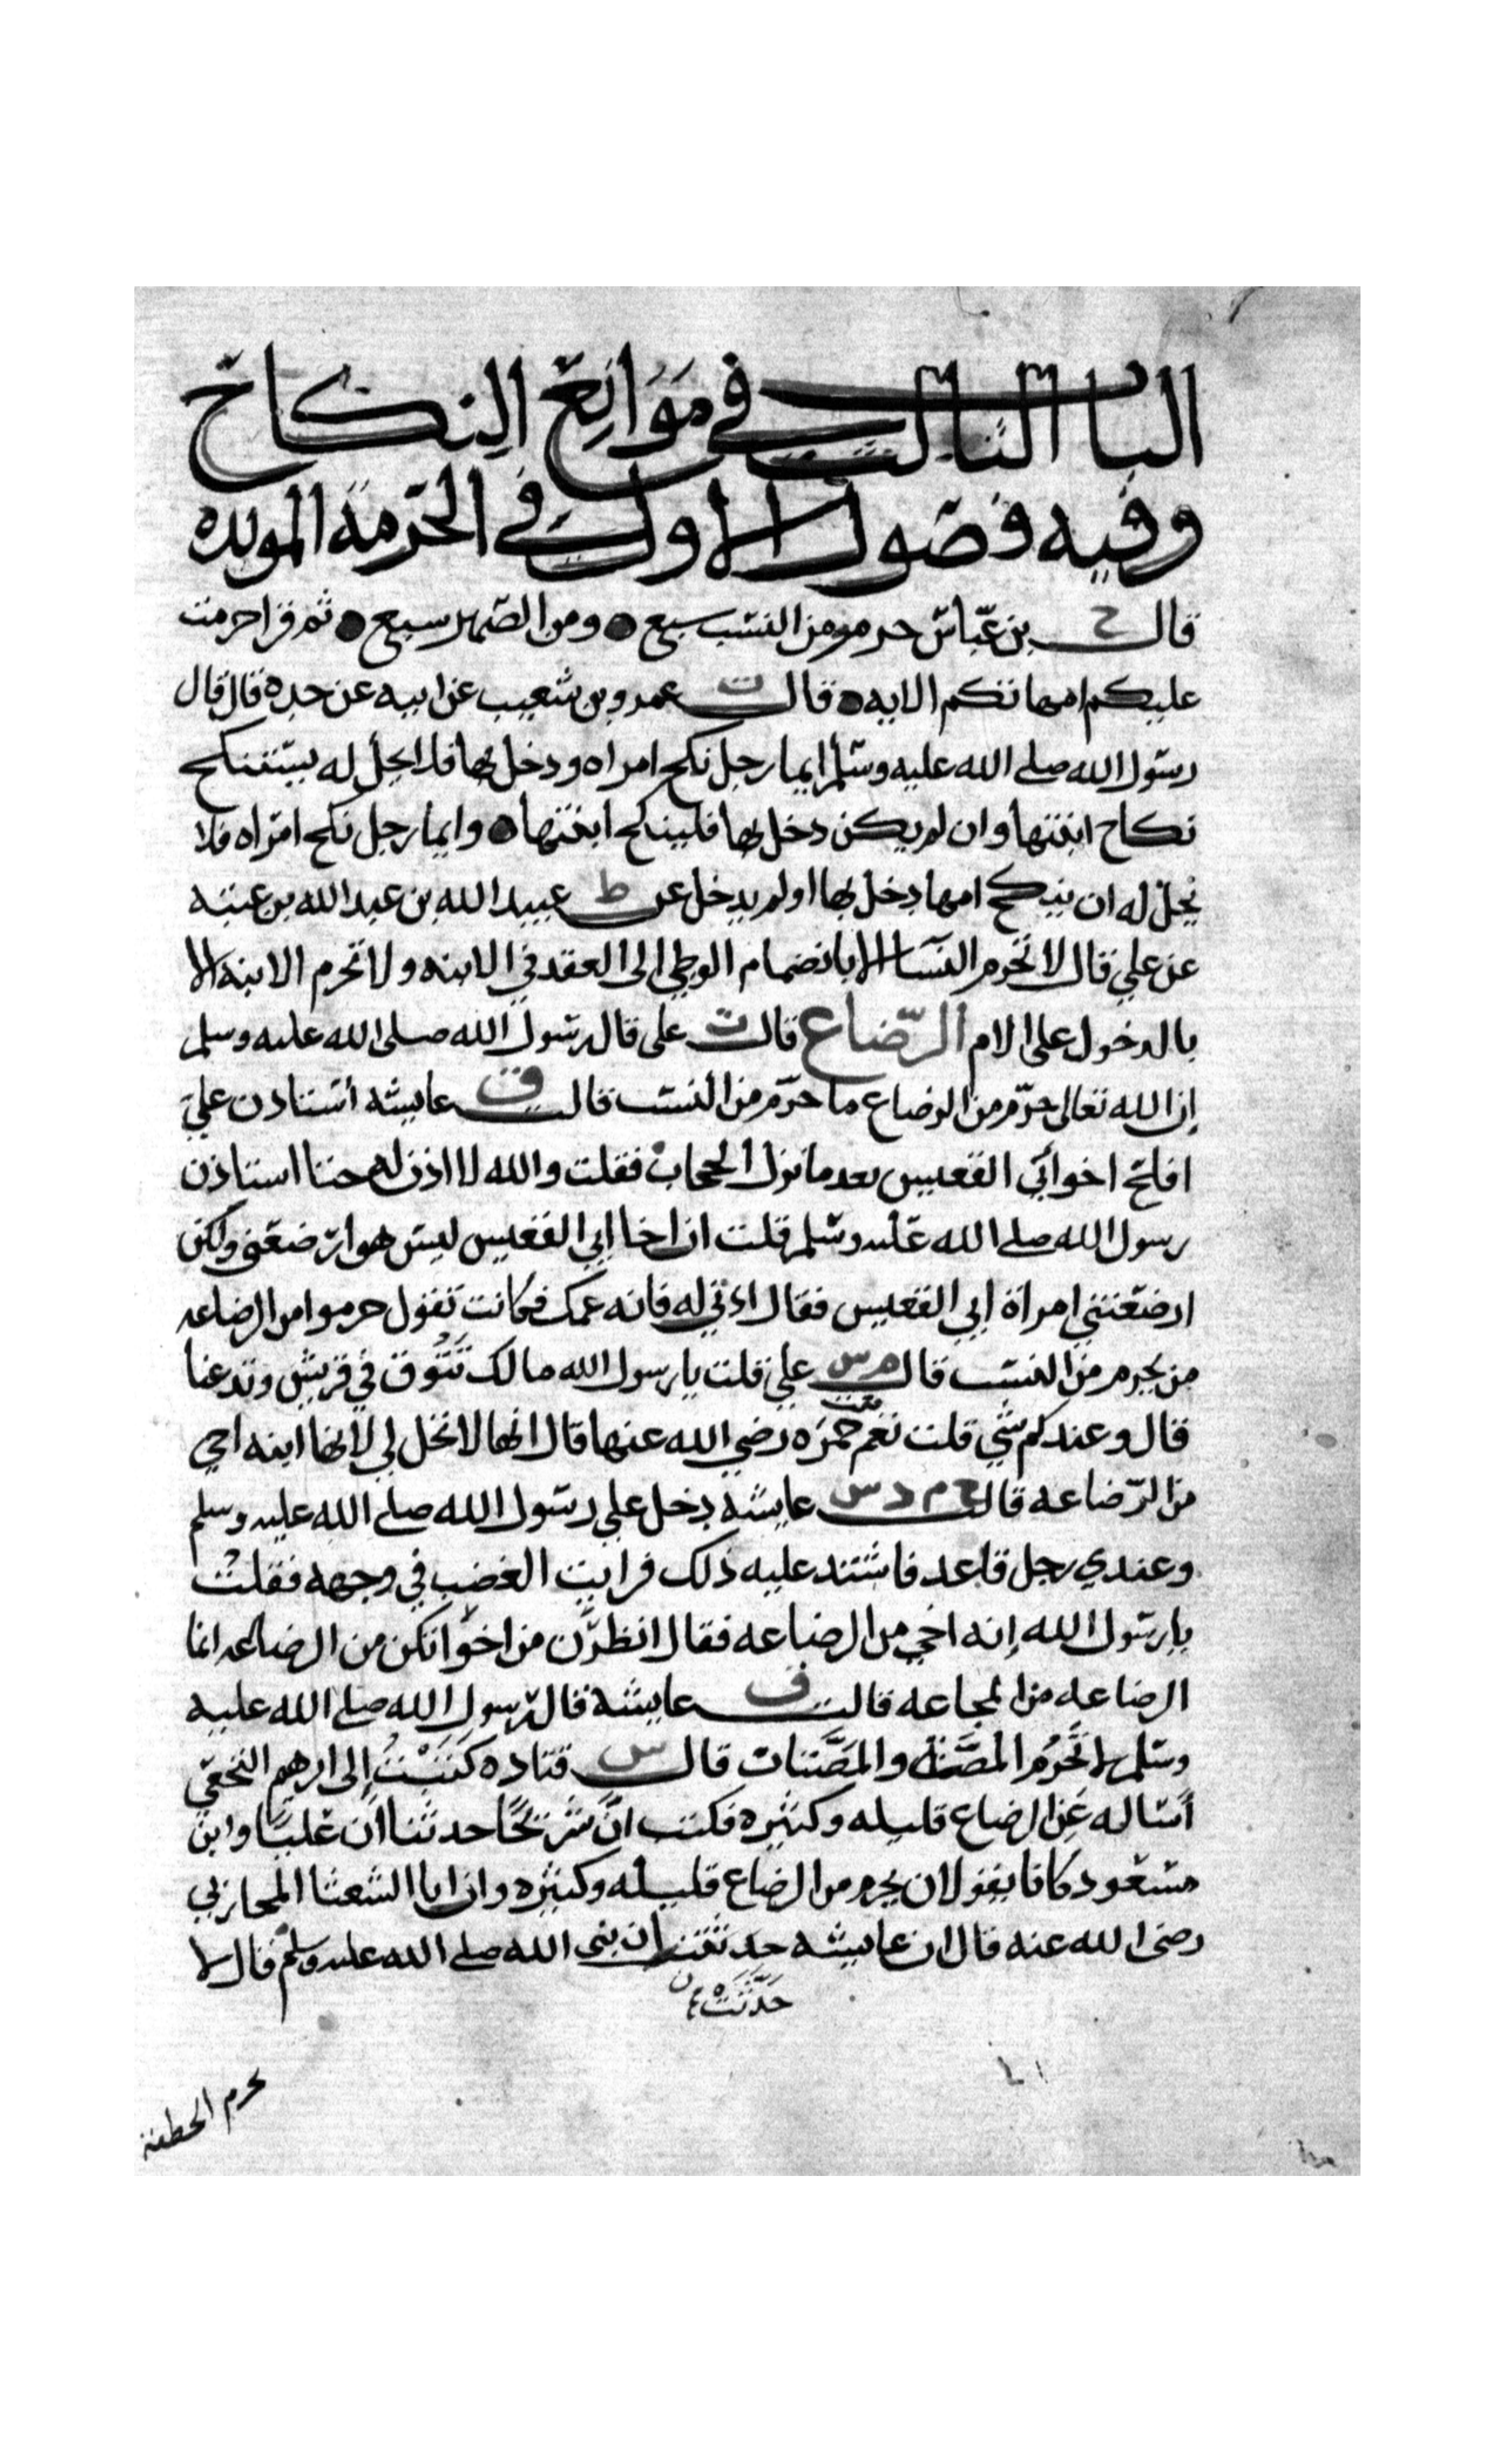 الباب الثالث في مَوَانِع النكاح
وفيه فصول الاول في الحرمة الموبده
قال خ بن عبّاس حرم من النسب سبع ومن الصهر سبع ثم قرا حرمت
عليكم امهاتكم الايه قال ت عمرو بن شعيب عن ابيه عن جده قال قال
رسول الله صلى الله عليه وسلم ايما رجل نكح امراه ودخل بها فلا يحل له
نكاح ابنتها وان لم يكن دخل بها فلينكح ابنتها وايما رجل نكح امراه فلا
يحل له ان ينكح امها دخل بها او لم يدخل عن ط عبيد الله بن عبد الله بن عتبه
عن علي قال لا تحرم النسا الا بانضمام الوطي الى العقد في الابنه ولا تحرم الابنه الا
بالدخول على الام الرّضاع قال ت على قال رسول الله صلى الله عليه وسلم
إن الله تعالى حرّم من الرضاع ما حرّم من النسب قالت ق عايشه استاذن عليّ
افلح اخو أبي القعيس بعد ما نزل الحجاب فقلت والله لا اذن له حتا استاذن
رسول الله صلى الله عليه وسلم قلت ان اخا ابي القعيس ليس هو ارضعني ولكن
ارضعتني امراة ابي القعيس فقال اءذني له فانه عمك فكانت تقول حرموا من الرضاعه
من يحرم من النسب قال م س علي قلت يا رسول الله مالك تَتُوق في قريش وتدعنا
قال وعندكم شي قلت نعم بنت حمزه رضي الله عنها قال انها لا تحل لي لانها ابنه اخي
من الرّضاعه قالت خ م د س عايشه دخل علي رسول الله صلى الله عليه وسلم
وعندي رجل قاعد فاشتد عليه ذلك فرايت الغضب في وجهه فقلت
يا رسول الله إنه اخي من الرضاعه فقال انظرن من اخوانكن من الرضاعه انما
الرضاعه من المجاعه قالت ق عايشة قال رسول الله صلى الله عليه
وسلم لا تحَرِّمُ المصَّة والمصَّتان قال س قتاده كَتَبْتُ إلى ابرهيم النخعي
أساله عن الرضاع قليله وكثيره فكتب انَّ شريحًا حدثنا أن عليًا وابن
مسعود كانا يقولان يحرم من الرضاع قليله وكثيره وان ابا الشعثا المحاربي
رضى الله عنه قال ان عايشه حدثتنا ان نبي الله صلى الله عليه وسلم قال لا
حَدَّثَتْه
تحرم الخطفة